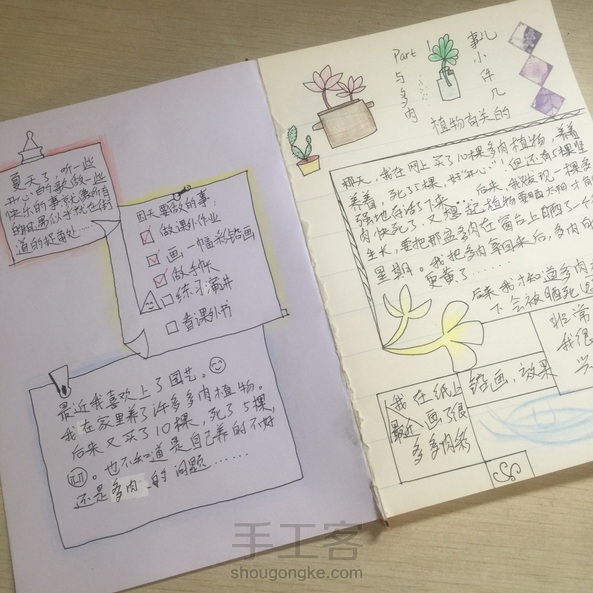 夏天了，听一些
开心的歌做一些
快乐的事
道的
今天要做的事：
做课外作业
画一幅彩铅画
做手帐
练习
看课外书
最近我喜欢上了园艺。
我在家里养了许多多肉植物。
后来又买了10棵，死了5棵，
。也不知道是自己养的不好
还是多肉的问题……
Part 1
与多肉
植物有关的
几件小事儿
那天，我在网上买了10棵多肉植物，养着
养着，死了5棵，好"开心"！但还有5棵坚
强地存活下来……后来，我发现一棵
肉快死了，又想这植物要晒太阳才
生长，要把那盆多肉在窗台上晒了一个
里期。我把多肉拿回来后，多肉的
变黄了……
后来我才知道多肉
下会被晒死
非常
我很
我在纸上绘画，效果
最近画了很
多多肉
手工客
shougongke.com